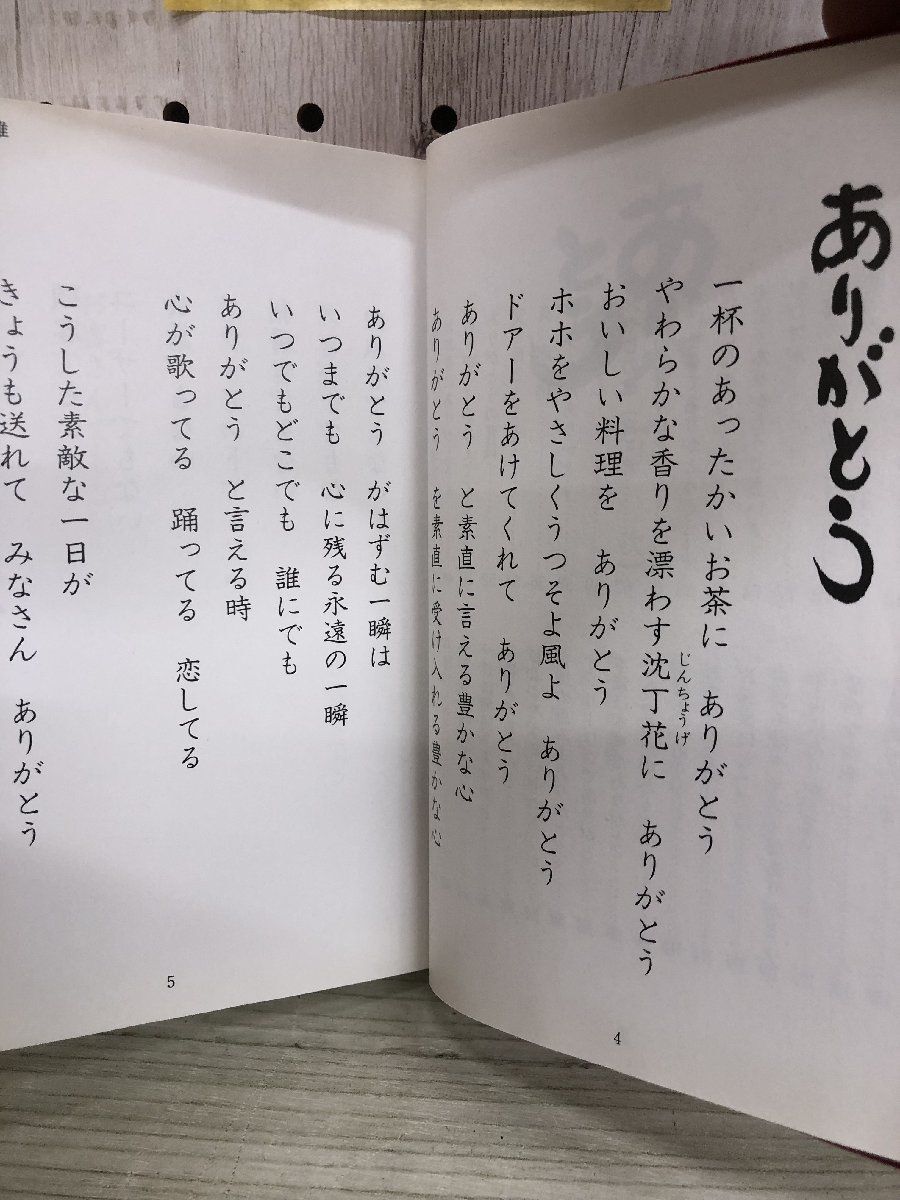 ありがとう
一杯のあったかいお茶に　ありがとう
やわらかな香りを漂わす沈丁花に　ありがとう
じんちょうげ
おいしい料理を　ありがとう
ホホをやさしくうつそよ風よ　ありがとう
ドアーをあけてくれて　ありがとう
ありがとう　と素直に言える豊かな心
ありがとう　を素直に受け入れる豊かな心
4
ありがとう　がはずむ一瞬は
いつまでも　心に残る永遠の一瞬
いつでもどこでも　誰にでも
ありがとう　と言える時
心が歌ってる　踊ってる　恋してる
こうした素敵な一日が
きょうも送れて　みなさん　ありがとう
5